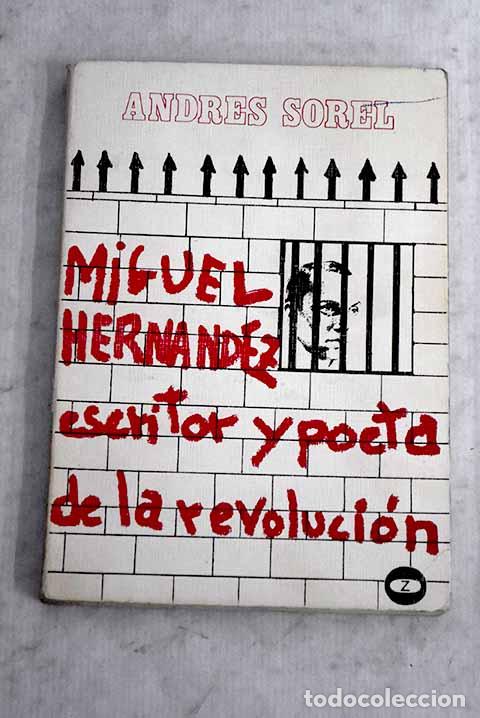 ANDRES SOREL
MiGUEL
HERNANDEZ
escritor y poeta
de la revolución
Z
todocoleccion